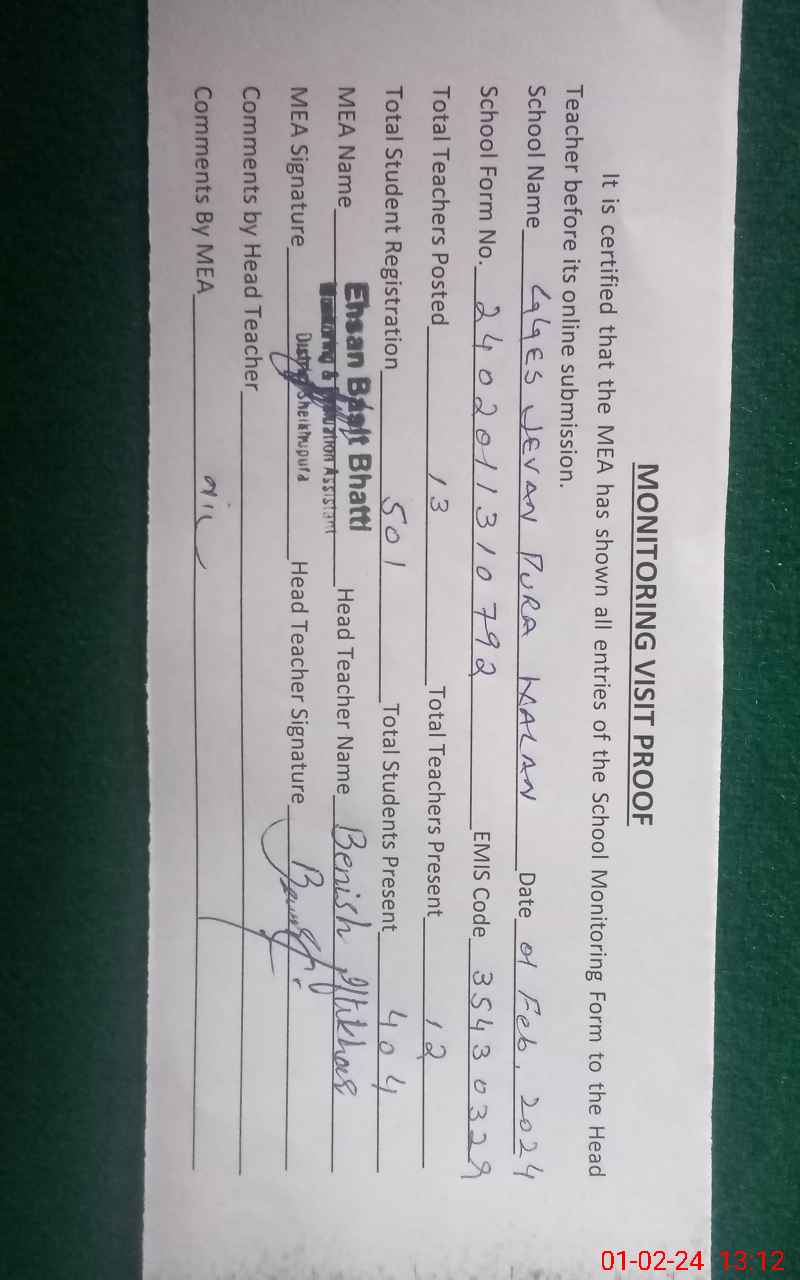 MONITORING VISIT PROOF
It is certified that the MEA has shown all entries of the School Monitoring Form to the Head
Teacher before its online submission.
School Name GGES JEVAN PURA KALAN Date 01 Feb, 2024
School Form No. 2402011310792 EMIS Code 35430329
Total Teachers Posted 13 Total Teachers Present 12
Total Student Registration 501 Total Students Present 404
MEA Name Ehsan Basit Bhatti Head Teacher Name Benish Iftikhar
Monitoring & Evaluation Assistant
MEA Signature District Sheikhupura Head Teacher Signature
Comments by Head Teacher
Comments By MEA nil
01-02-24 13:12